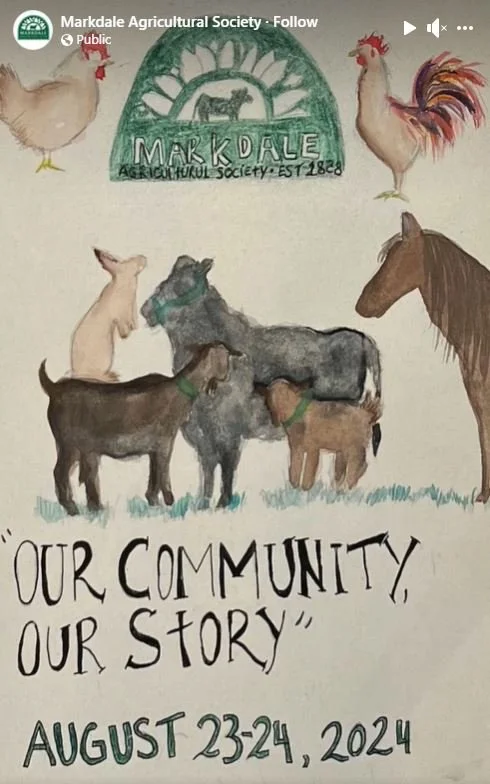 Markdale Agricultural Society · Follow
Public
MARKDALE
MARKDALE
AGRICULTURUL SOCIETY · EST 1828
"OUR COMMUNITY,
OUR STORY"
AUGUST 23-24, 2024